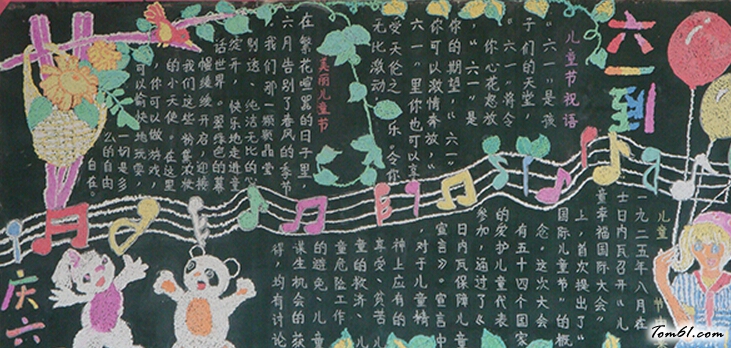 六一到
儿童节祝语
“六一”是孩
子们的天堂，
“六一”将令
你心花怒放
“六一”是
你的期望，“六一”
你可以激情奔放，
“六一”里你也可以享
受天伦之乐。令你
无比激动。
美丽儿童节
在繁花喧嚣的日子里，
六月告别了春风的季节
我们那一颗颗晶莹
别透、纯洁无比的
绽开，快乐地走进童
话世界。翠绿色的幕
幔缓缓开启，迎接
我们这些粉装浓妆
的小天使。在这里
你可以做游戏，
可以愉快地玩耍，
一切是多
么的自由
自在。
儿童节由
一九二五年八月在
士日内瓦召开《儿
童幸福国际大会》
上，首次提出了“
国际儿童节”的概
念。这次大会
有五十四个国家
的爱护儿童代表
参加，通过了《
日内瓦保障儿童
宣言》。宣言中
对于儿童精
神上应有的
享受、贫苦儿
童的救济、儿
童危险工作
的避免、儿童
谋生机会的获
得，均有讨论
庆六
Tom61.com